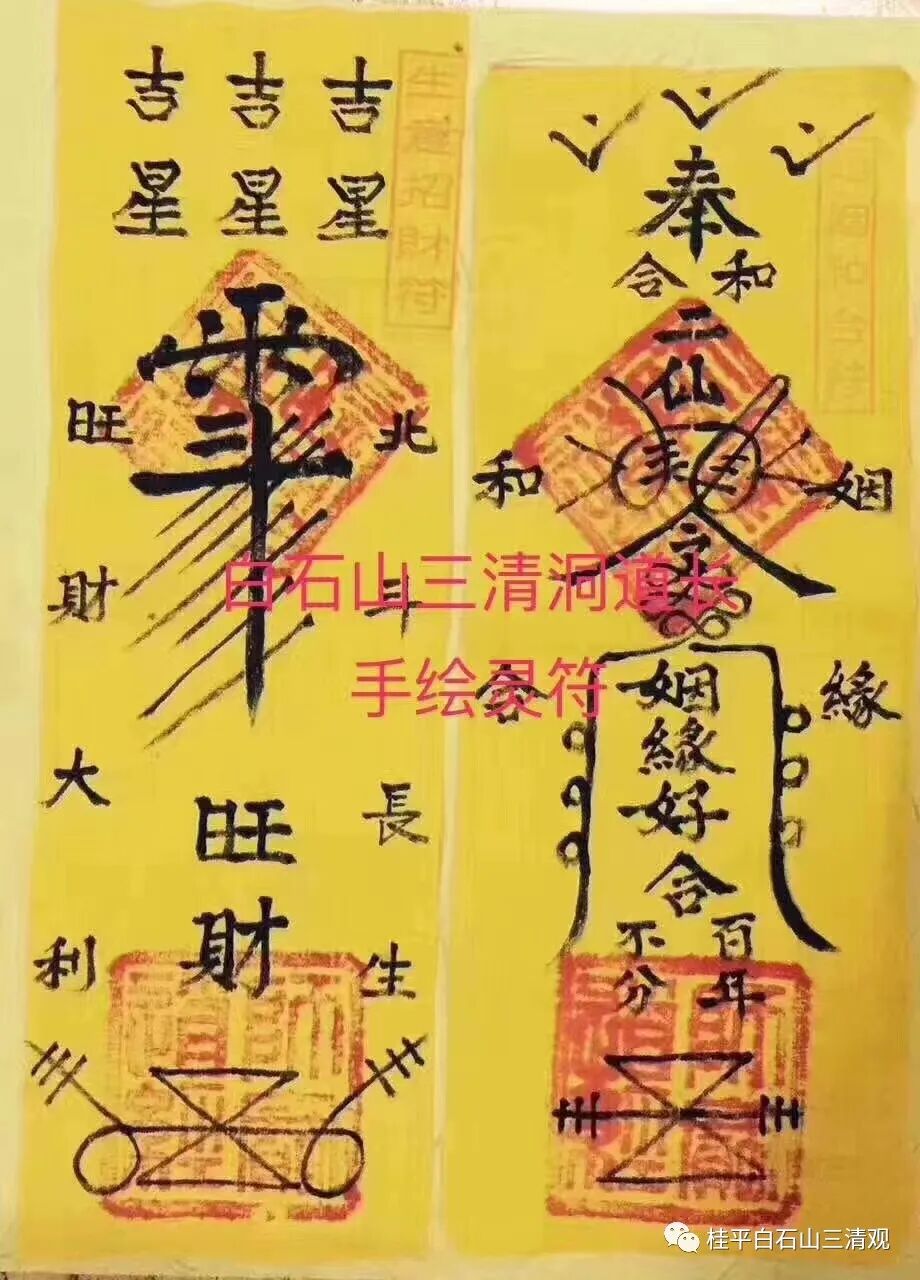 吉星 吉星 吉星
生意招財符
北斗長生
旺財大利
旺財
奉
和合
二仙
姻緣
和合
姻緣好合
百年
不分
白石山三清洞道长
手绘灵符
桂平白石山三清观